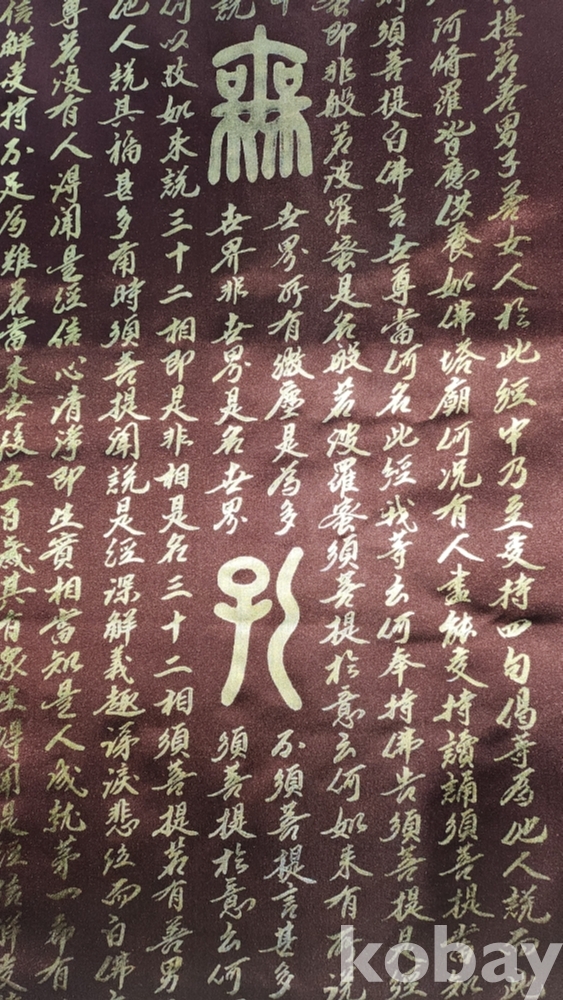 提若善男子善女人於此經中乃至受持四句偈等為他人說而此
阿脩羅皆應供養如佛塔廟何況有人盡能受持讀誦須菩提當知
時須菩提白佛言世尊當何名此經我等云何奉持佛告須菩提是經
蜜即非般若波羅蜜是名般若波羅蜜須菩提於意云何如來有所說
無
世界所有微塵是為多
說世界非世界是名世界
不須菩提言甚多
須菩提於意云何
何以故如來說三十二相即是非相是名三十二相須菩提若有善男
他人說其福甚多爾時須菩提聞說是經深解義趣涕淚悲泣而白佛
尊若復有人得聞是經信心清淨即生實相當知是人成就第一希有
信解受持不足為難若當來世後五百歲其有眾生得聞是經信解受
kobay